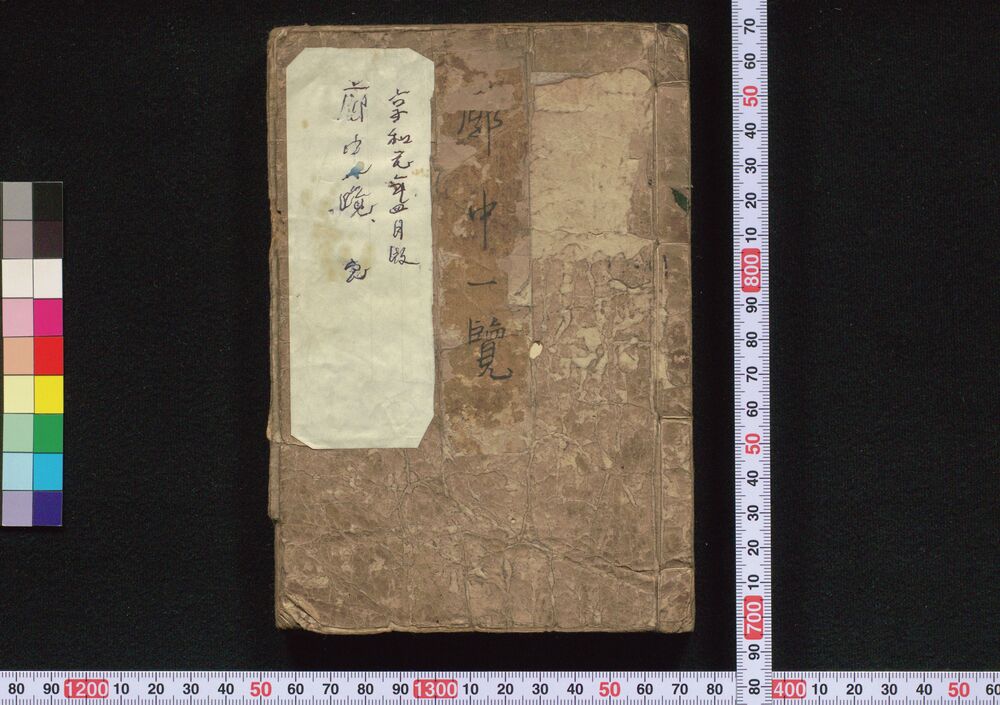 廓中一覽
享和元年四月改
廓中一覧 完
70 60 50 40 30 20 10 800 90 80 70 60 50 40 30 20 10 700 90 80
80 90 1200 10 20 30 40 50 60 70 80 90 1300 10 20 30 40 50 60 70 80 400 10 20 30 40 50 60